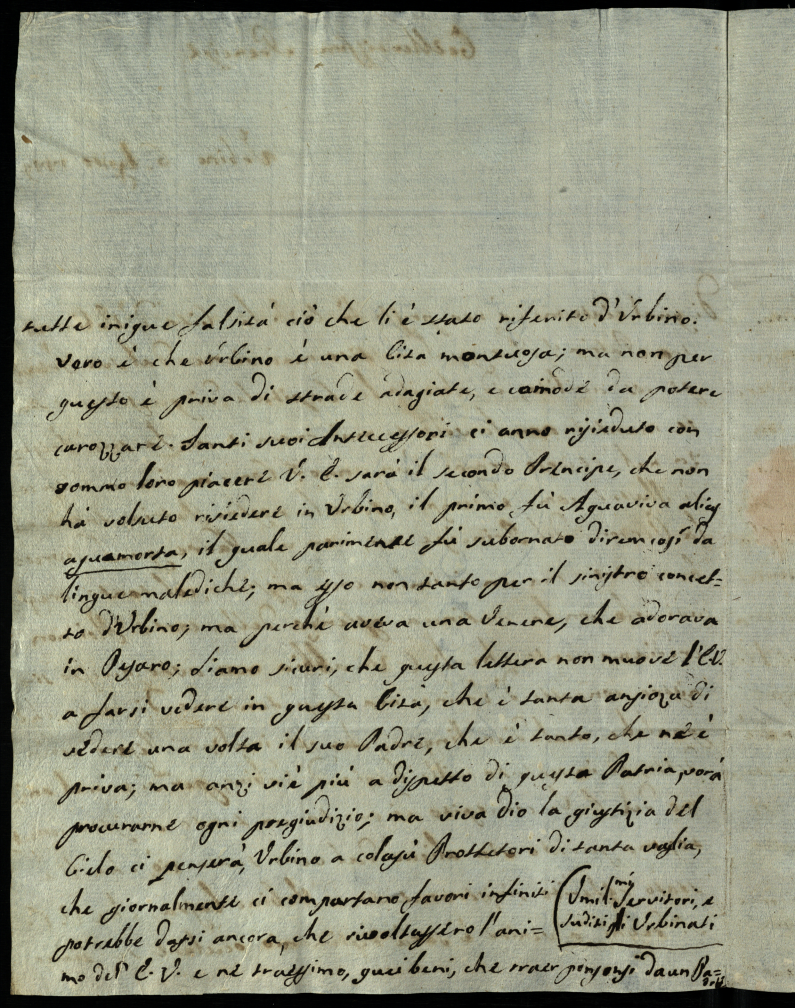 tutte inique falsità ciò che li è stato riferito d'Urbino.
Vero è che Urbino è una Cità montuosa; ma non per
questo è priva di strade adagiate, e comode da potere
carozzare. Tanti suoi Antecessori ci anno risieduto con
sommo loro piacere V. E. sarà il secondo Prencipe, che non
hà volsuto risiedere in Urbino, il primo fù Aquaviva alias
aquamorta, il quale parimente fù subornato diremcosì da
lingue malediche; ma esso non tanto per il sinistro concet=
to d'Urbino; ma perché aveva una Venere, che adorava
in Pesaro; siamo sicuri, che questa lettera non muove l'E.V.
a farsi vedere in questa Cità, che è tanta ansioza di
vedere una volta il suo Padre, che è tanto, che né è
priva; ma anzi viè più a dispetto di questa Patria, vorà
procurarne ogni pregiudizio; ma viva dio la giustizia del
Cielo ci penserà, Urbino a colasù Prottetori di tanta vaglia,
che giornalmente ci compartano favori infiniti
potrebbe darsi ancora, che rivoltassero l'ani=
mo dell' E. V. e né traessimo, quei beni, che traer ponsonsi da un Pa=
dre
Umil.mi Servitori, e
Suditi gli Urbinati